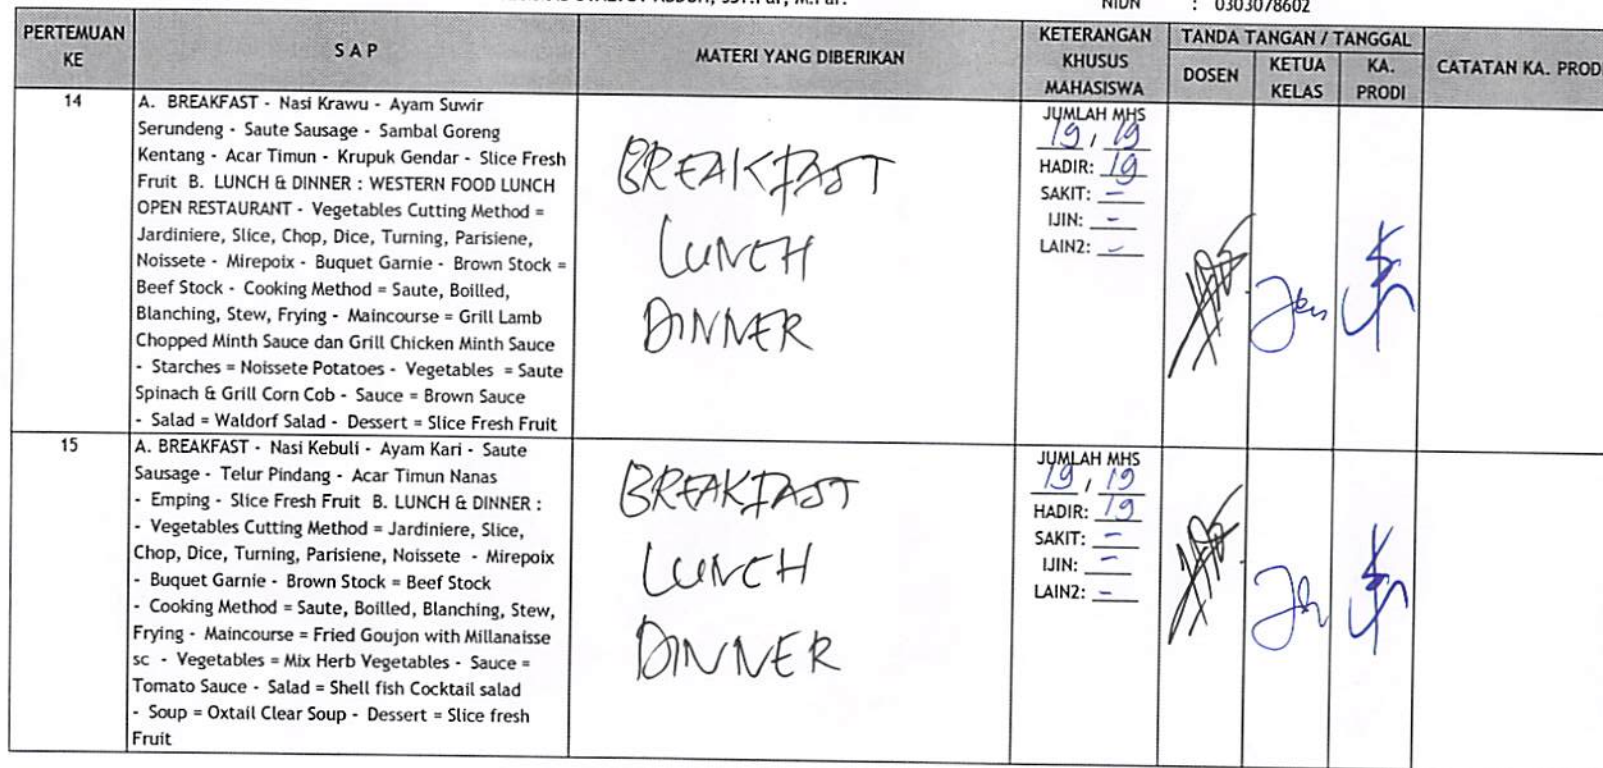 NIDN : 0303078602
PERTEMUAN KE
S A P
MATERI YANG DIBERIKAN
KETERANGAN KHUSUS MAHASISWA
TANDA TANGAN / TANGGAL
DOSEN
KETUA KELAS
KA. PRODI
CATATAN KA. PRODI
14
A. BREAKFAST - Nasi Krawu - Ayam Suwir
Serundeng - Saute Sausage - Sambal Goreng
Kentang - Acar Timun - Krupuk Gendar - Slice Fresh
Fruit B. LUNCH & DINNER : WESTERN FOOD LUNCH
OPEN RESTAURANT - Vegetables Cutting Method =
Jardiniere, Slice, Chop, Dice, Turning, Parisiene,
Noissete - Mirepoix - Buquet Garnie - Brown Stock =
Beef Stock - Cooking Method = Saute, Boilled,
Blanching, Stew, Frying - Maincourse = Grill Lamb
Chopped Minth Sauce dan Grill Chicken Minth Sauce
- Starches = Noissete Potatoes - Vegetables = Saute
Spinach & Grill Corn Cob - Sauce = Brown Sauce
- Salad = Waldorf Salad - Dessert = Slice Fresh Fruit
BREAKFAST
LUNCH
DINNER
JUMLAH MHS
19 , 19
HADIR: 19
SAKIT: -
IJIN: -
LAIN2: -
15
A. BREAKFAST - Nasi Kebuli - Ayam Kari - Saute
Sausage - Telur Pindang - Acar Timun Nanas
- Emping - Slice Fresh Fruit B. LUNCH & DINNER :
- Vegetables Cutting Method = Jardiniere, Slice,
Chop, Dice, Turning, Parisiene, Noissete - Mirepoix
- Buquet Garnie - Brown Stock = Beef Stock
- Cooking Method = Saute, Boilled, Blanching, Stew,
Frying - Maincourse = Fried Goujon with Millanaisse
sc - Vegetables = Mix Herb Vegetables - Sauce =
Tomato Sauce - Salad = Shell fish Cocktail salad
- Soup = Oxtail Clear Soup - Dessert = Slice fresh
Fruit
BREAKFAST
LUNCH
DINNER
JUMLAH MHS
19 , 19
HADIR: 19
SAKIT: -
IJIN: -
LAIN2: -